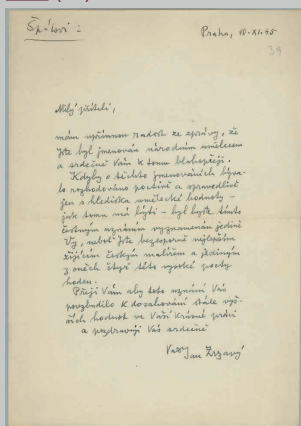 Špálovi:
Praha, 10.XI.45
39
Milý příteli,
mám upřímnou radost ze zprávy, že
jste byl jmenován národním umělcem
a srdečně Vám k tomu blahopřeji.
Kdyby o těchto jmenováních býva-
lo rozhodováno poctivě a spravedlivě
jen s hlediska umělecké hodnoty -
jak tomu má býti - byl byste tímto
čestným uznáním vyznamenán jedině
Vy, neboť jste bezesporně nejlepším
žijícím českým malířem a jediným
z oněch čtyř této vysoké pocty
hoden.
Přeji Vám aby toto uznání Vás
povzbudilo k dosahování stále vyš-
ších hodnot ve Vaší krásné práci
a pozdravuji Vás srdečně
Vasz Jan Zrzavý